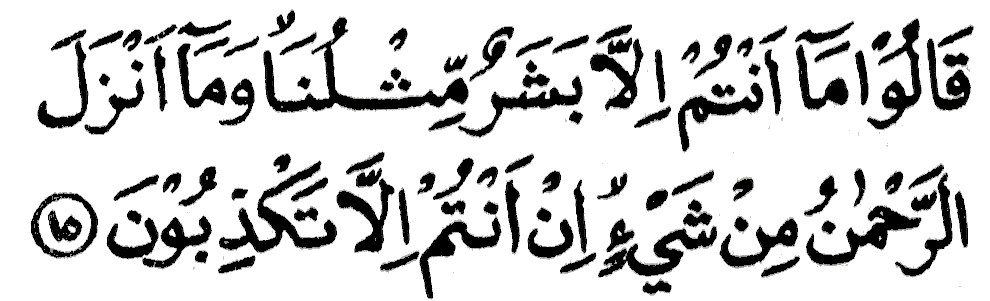 قَالُوْا مَاۤ اَنْتُمْ اِلَّا بَشَرٌ مِّثْلُنَاۙ وَمَاۤ اَنْزَلَ
الرَّحْمٰنُ مِنْ شَیْءٍۙ اِنْ اَنْتُمْ اِلَّا تَكْذِبُوْنَ ۝۱۵